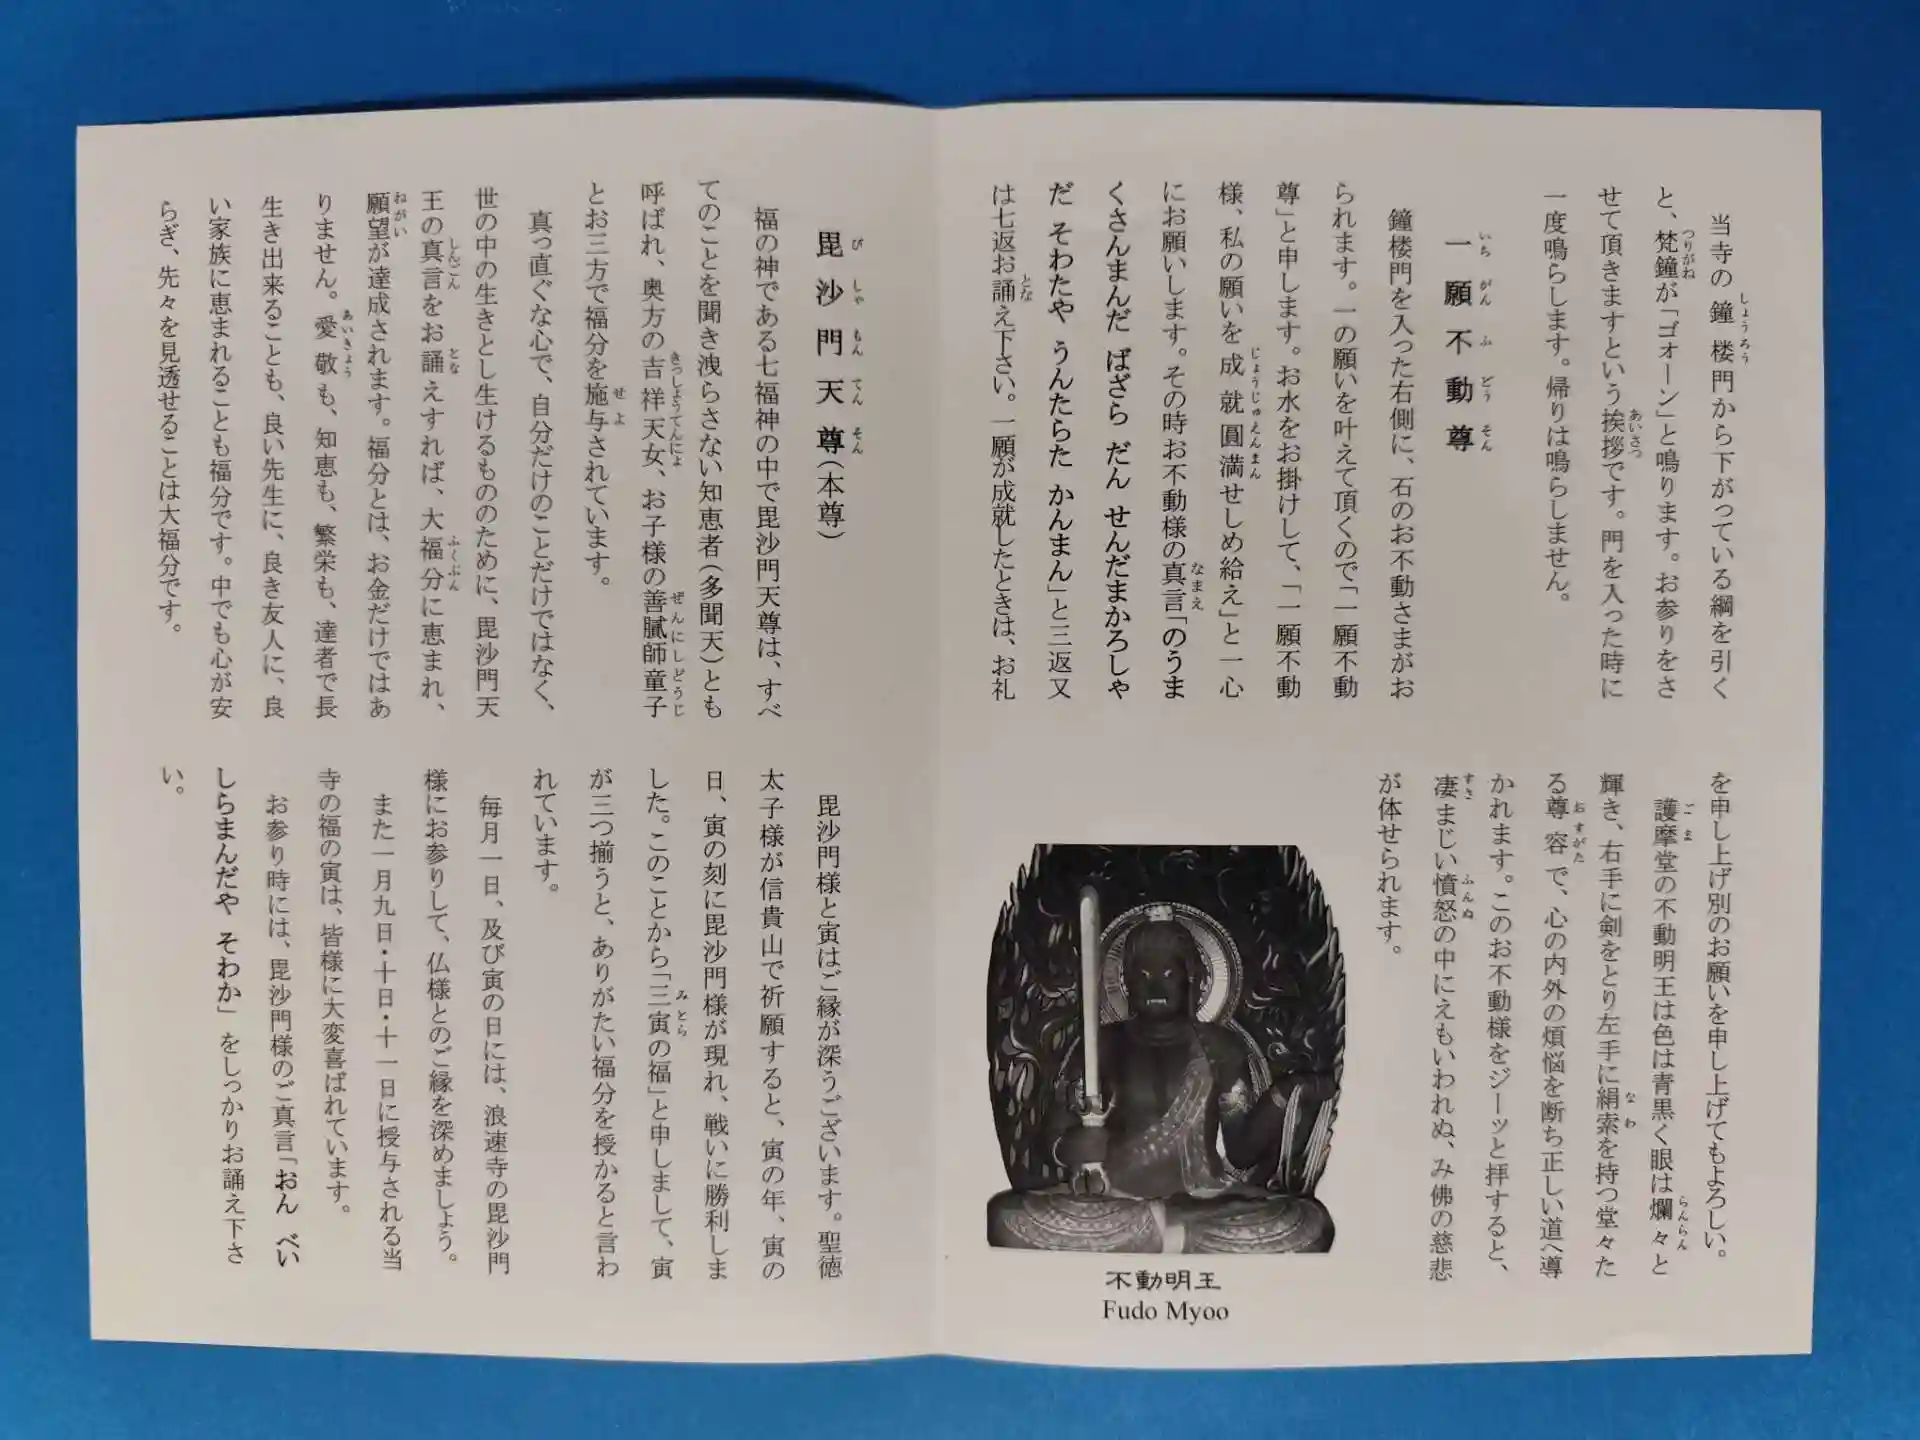 当寺の鐘楼門から下がっている綱を引く
と、梵鐘が「ゴォーン」と鳴ります。お参りをさ
せて頂きますという挨拶です。門を入った時に
一度鳴らします。帰りは鳴らしません。
一願不動尊
鐘楼門を入った右側に、石のお不動さまがお
られます。一の願いを叶えて頂くので「一願不動
尊」と申します。お水をお掛けして、「一願不動
様、私の願いを成就圓満せしめ給え」と一心
にお願いします。その時お不動様の真言「のうま
くさんまんだ ばざら だん せんだまかろしゃ
だ そわたや うんたらた かんまん」と三返又
は七返お誦え下さい。一願が成就したときは、お礼
を申し上げ別のお願いを申し上げてもよろしい。
護摩堂の不動明王は色は青黒く眼は爛々と
輝き、右手に剣をとり左手に絹索を持つ堂々た
る尊容で、心の内外の煩悩を断ち正しい道へ導
かれます。このお不動様をジーッと拝すると、
凄まじい憤怒の中にえもいわれぬ、み佛の慈悲
が体せられます。
不動明王
Fudo Myoo
毘沙門天尊（本尊）
福の神である七福神の中で毘沙門天尊は、すべ
てのことを聞き洩らさない知恵者（多聞天）とも
呼ばれ、奥方の吉祥天女、お子様の善膩師童子
とお三方で福分を施与されています。
真っ直ぐな心で、自分だけのことだけではなく、
世の中の生きとし生けるもののために、毘沙門天
王の真言をお誦えすれば、大福分に恵まれ、
願望が達成されます。福分とは、お金だけではあ
りません。愛敬も、知恵も、繁栄も、達者で長
生き出来ることも、良い先生に、良き友人に、良
い家族に恵まれることも福分です。中でも心が安
らぎ、先々を見透せることは大福分です。
毘沙門様と寅はご縁が深うございます。聖徳
太子様が信貴山で祈願すると、寅の年、寅の
日、寅の刻に毘沙門様が現れ、戦いに勝利しま
した。このことから「三寅の福」と申しまして、寅
が三つ揃うと、ありがたい福分を授かると言わ
れています。
毎月一日、及び寅の日には、浪速寺の毘沙門
様にお参りして、仏様とのご縁を深めましょう。
また一月九日・十日・十一日に授与される当
寺の福の寅は、皆様に大変喜ばれています。
お参り時には、毘沙門様のご真言「おん べい
しらまんだや そわか」をしっかりお誦え下さ
い。